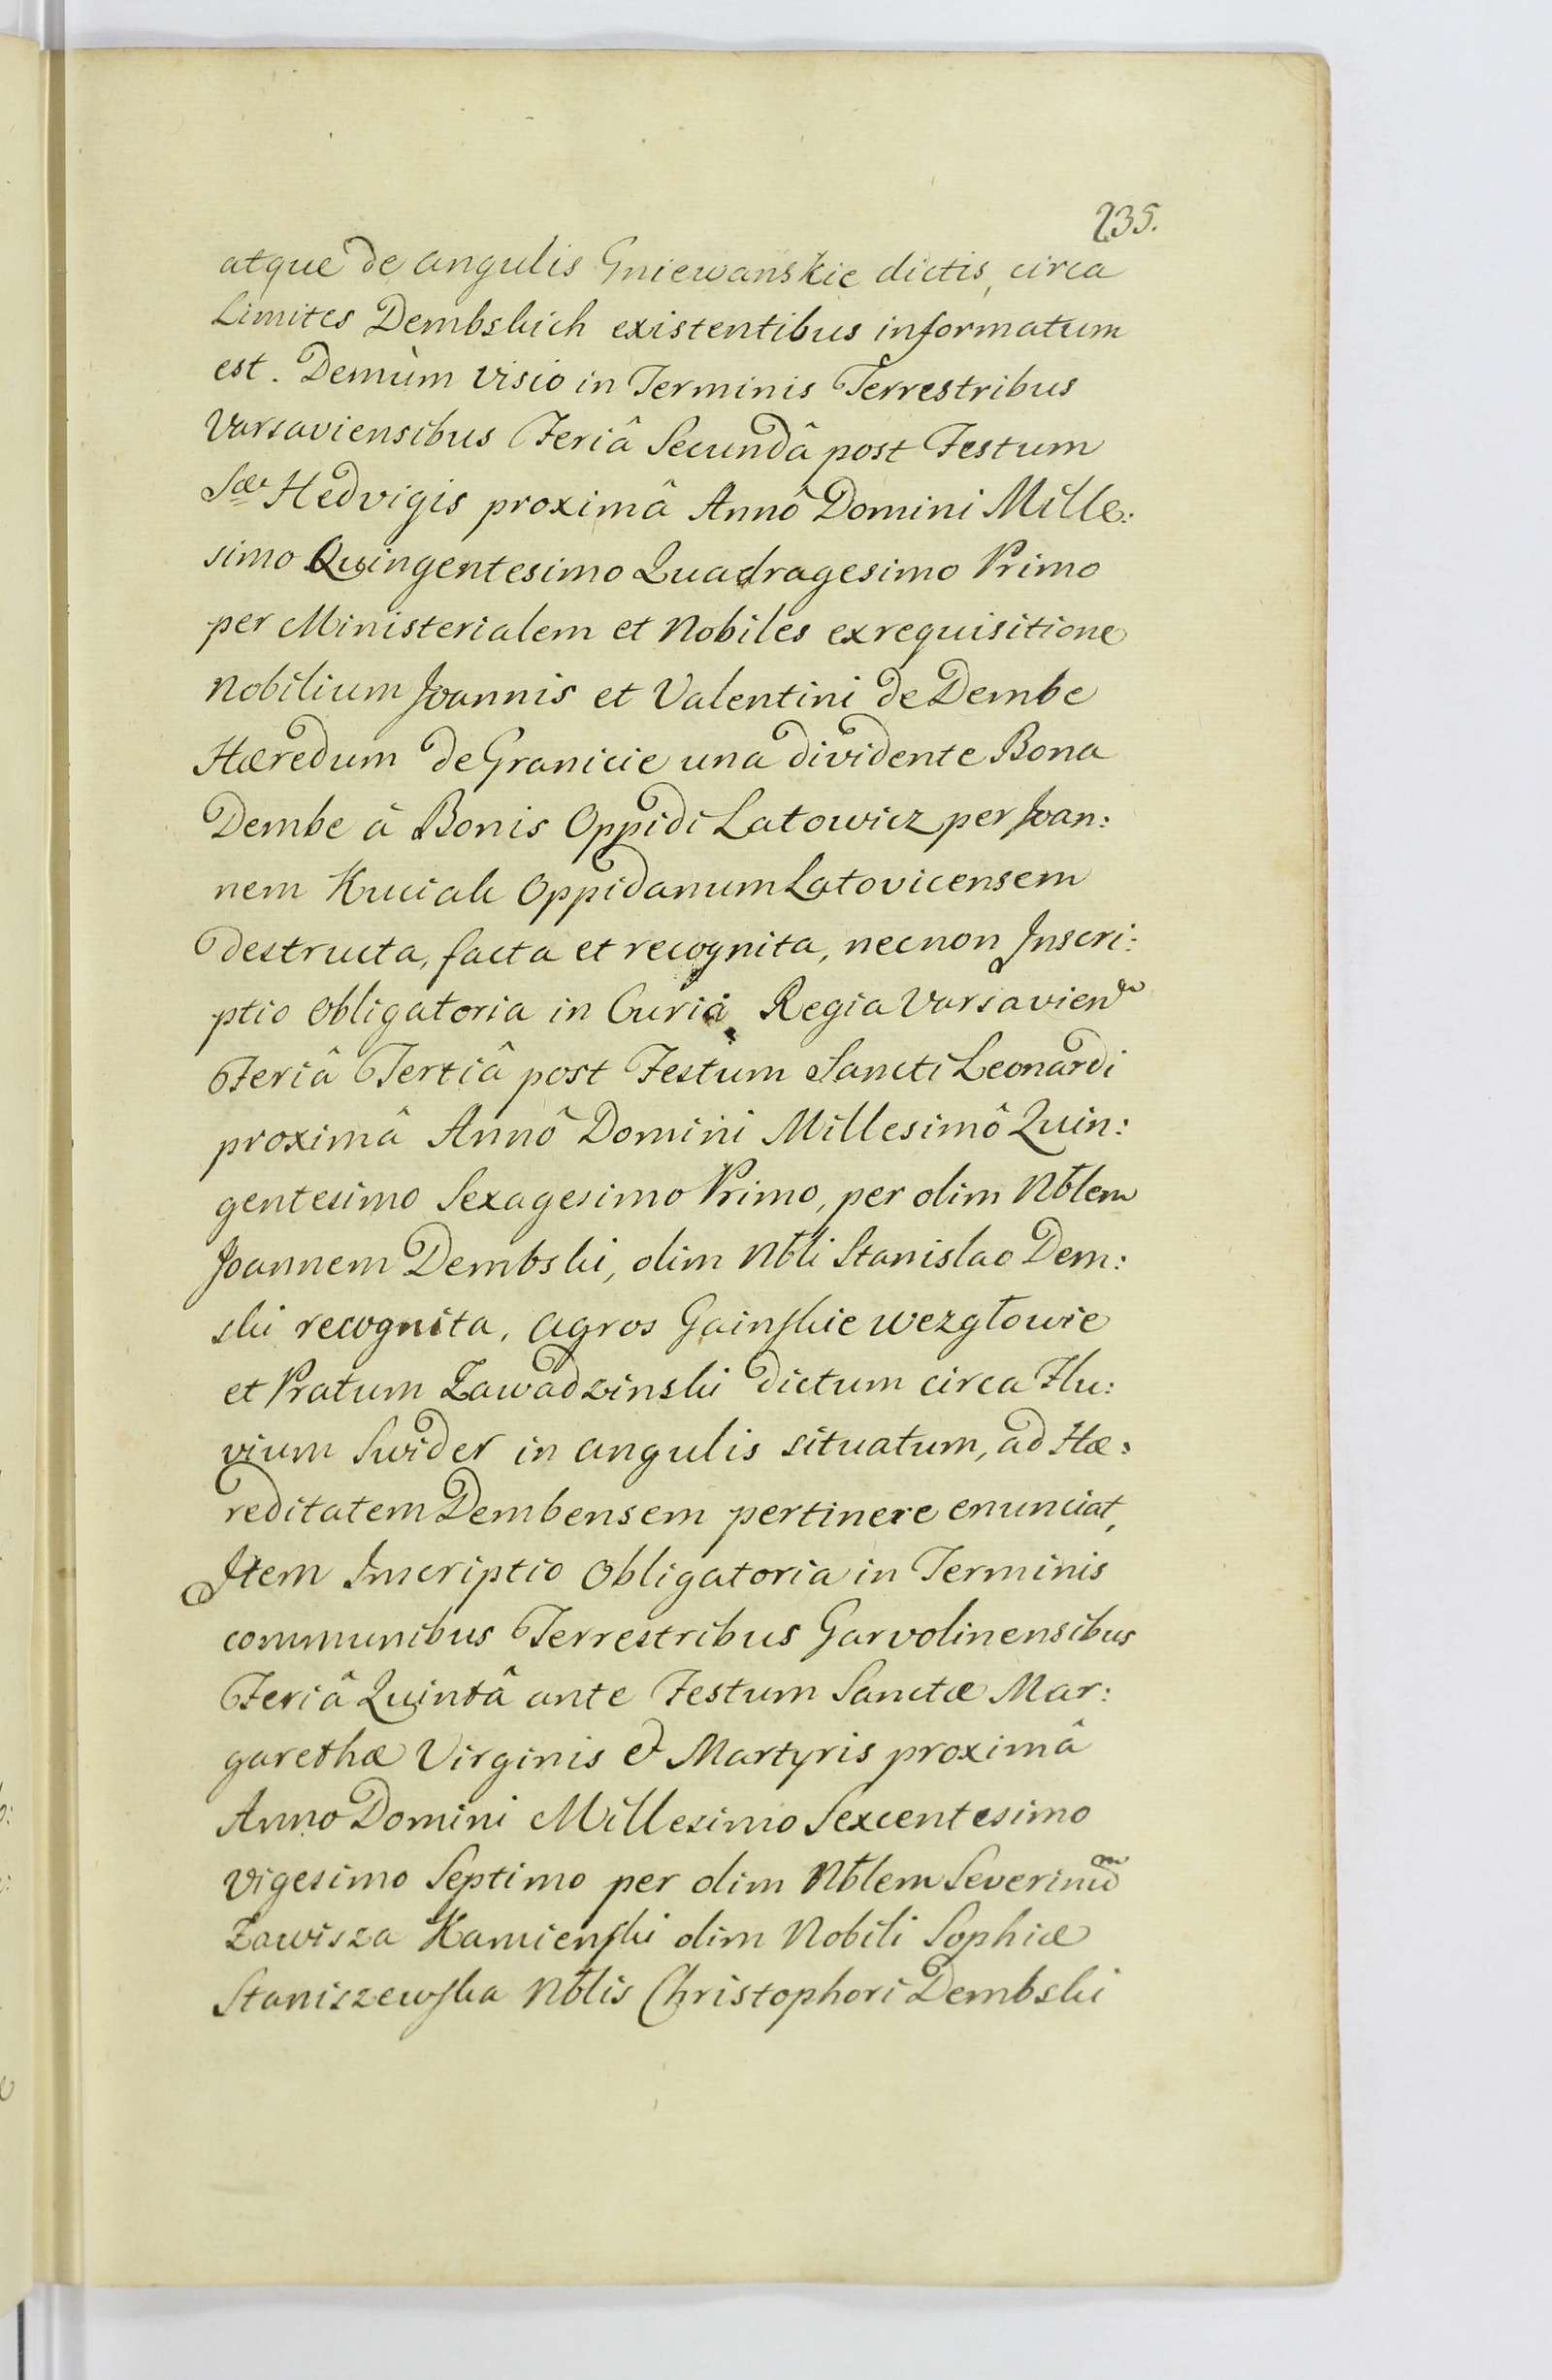 235.
atque de angulis Gniewanskie dictis, circa
Limites Dembskich existentibus informatum
est. Demùm visio in Terminis Terrestribus
Varsaviensibus Feriâ Secundâ post Festum
Sæ Hedvigis proximâ Annô Domini Mille:
simo Quingentesimo Quadragesimo Primo
per Ministerialem et Nobiles ex requisitione
Nobilium Joannis et Valentini de Dembe
Hæredum de Granicie una dividente Bona
Dembe à Bonis Oppidi Latowicz per Joan:
nem Kuciak Oppidanum Latovicensem
destructa, facta et recognita, necnon Inscri:
ptio Obligatoria in Curia Regia Varsavien
Feriâ Tertiâ post Festum Sancti Leonardi
proximâ Annô Domini Millesimô Quin:
gentesimo Sexagesimo Primo, per olim Nblem
Joannem Dembski, olim Nbli Stanislao Dem:
ski recognita, agros Gainskie wezgłowie
et Pratum Zawadzinski dictum circa Flu:
vium Swider in angulis situatum, ad Hæ:
reditatem Dembensem pertinere enunciat,
Item Inscriptio Obligatoria in Terminis
communibus Terrestribus Garvolinensibus
Feriâ Quintâ ante Festum Sanctæ Mar:
garethæ Virginis & Martyris proximâ
Anno Domini Millesimo Sexcentesimo
Vigesimo Septimo per olim Nblem Severinum
Zawisza Kamienski olim Nobili Sophiæ
Staniszewska Nblis Christophori Dembski